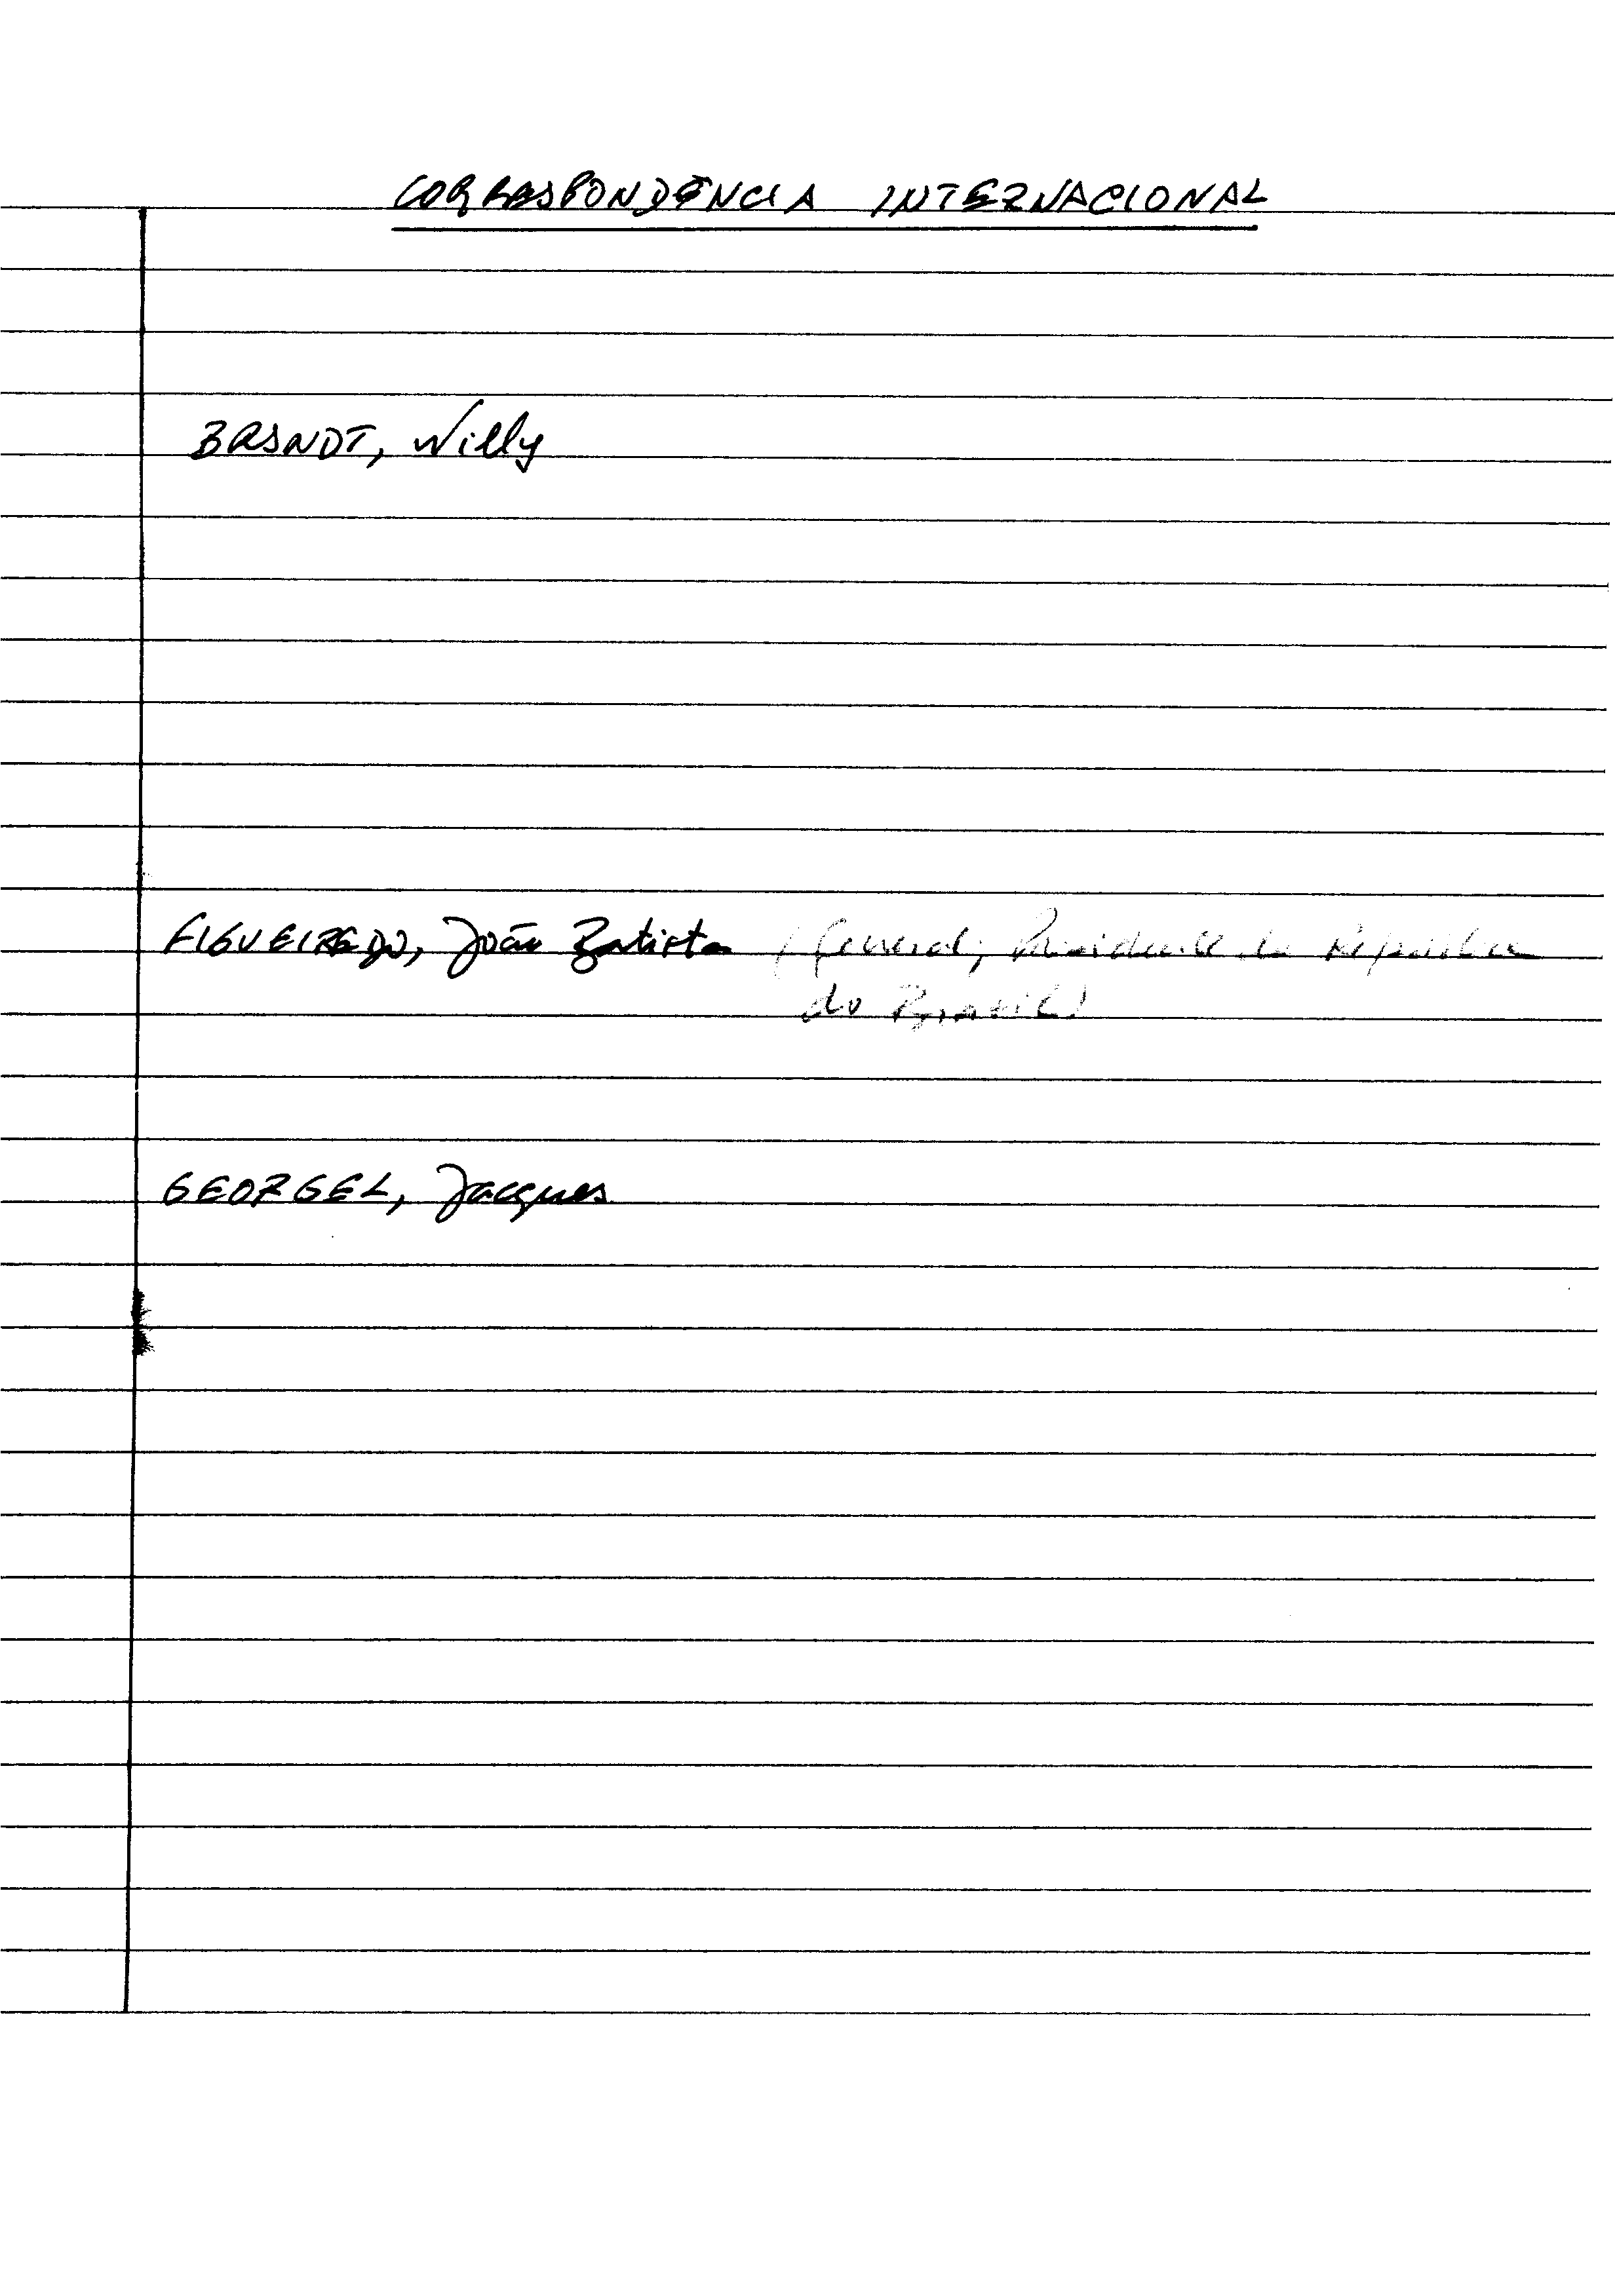 CORRESPONDÊNCIA INTERNACIONAL
BRANDT, Willy
FIGUEIREDO, João Batista (General, Presidente da República
do Brasil)
GEORGEL, Jacques